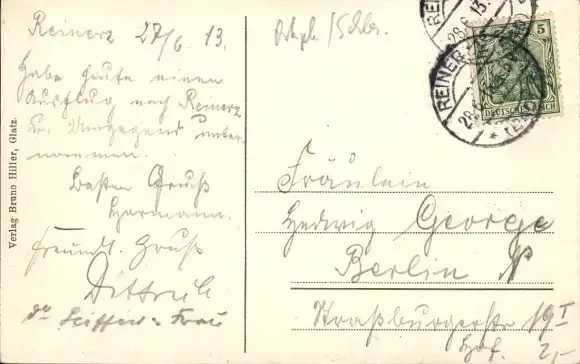 Reinerz 27/6. 13.
Habe heute einen
Ausflug nach Reinerz
u. Umgegend unter-
nommen.
Besten Gruß
Hermann.
Freundl. Gruß
Dittrich
Seiffert = Frau
Verlag Bruno Hiller, Glatz.
REINERZ
28.6.13.
REINERZ
5
DEUTSCHES REICH
Fräulein
Hedwig George
Berlin N
Straßburgerstr 19 I
Hof.